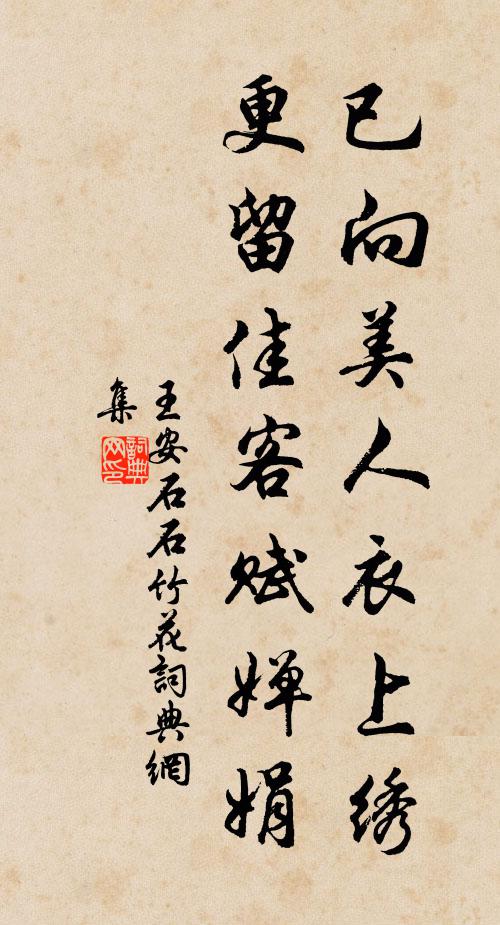 已向美人衣上绣
更留佳客赋婵娟
王安石石竹花詞典網
集
詞典网印